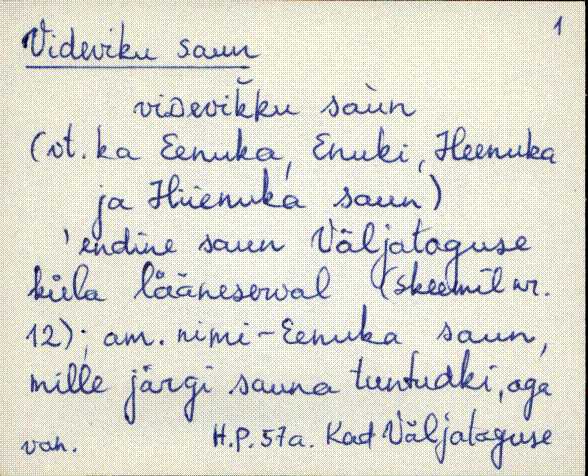 1
Videviku saun
viDevikku saùn
(vt. ka Eenuka, Enuki, Heenuka
ja Hiienuka saun)
'endine saun Väljataguse
küla lääneserval (skeemil nr.
12); am. nimi - Eenuka saun,
mille järgi sauna tuntudki, aga
van. H.P. 57a. Kad Väljataguse